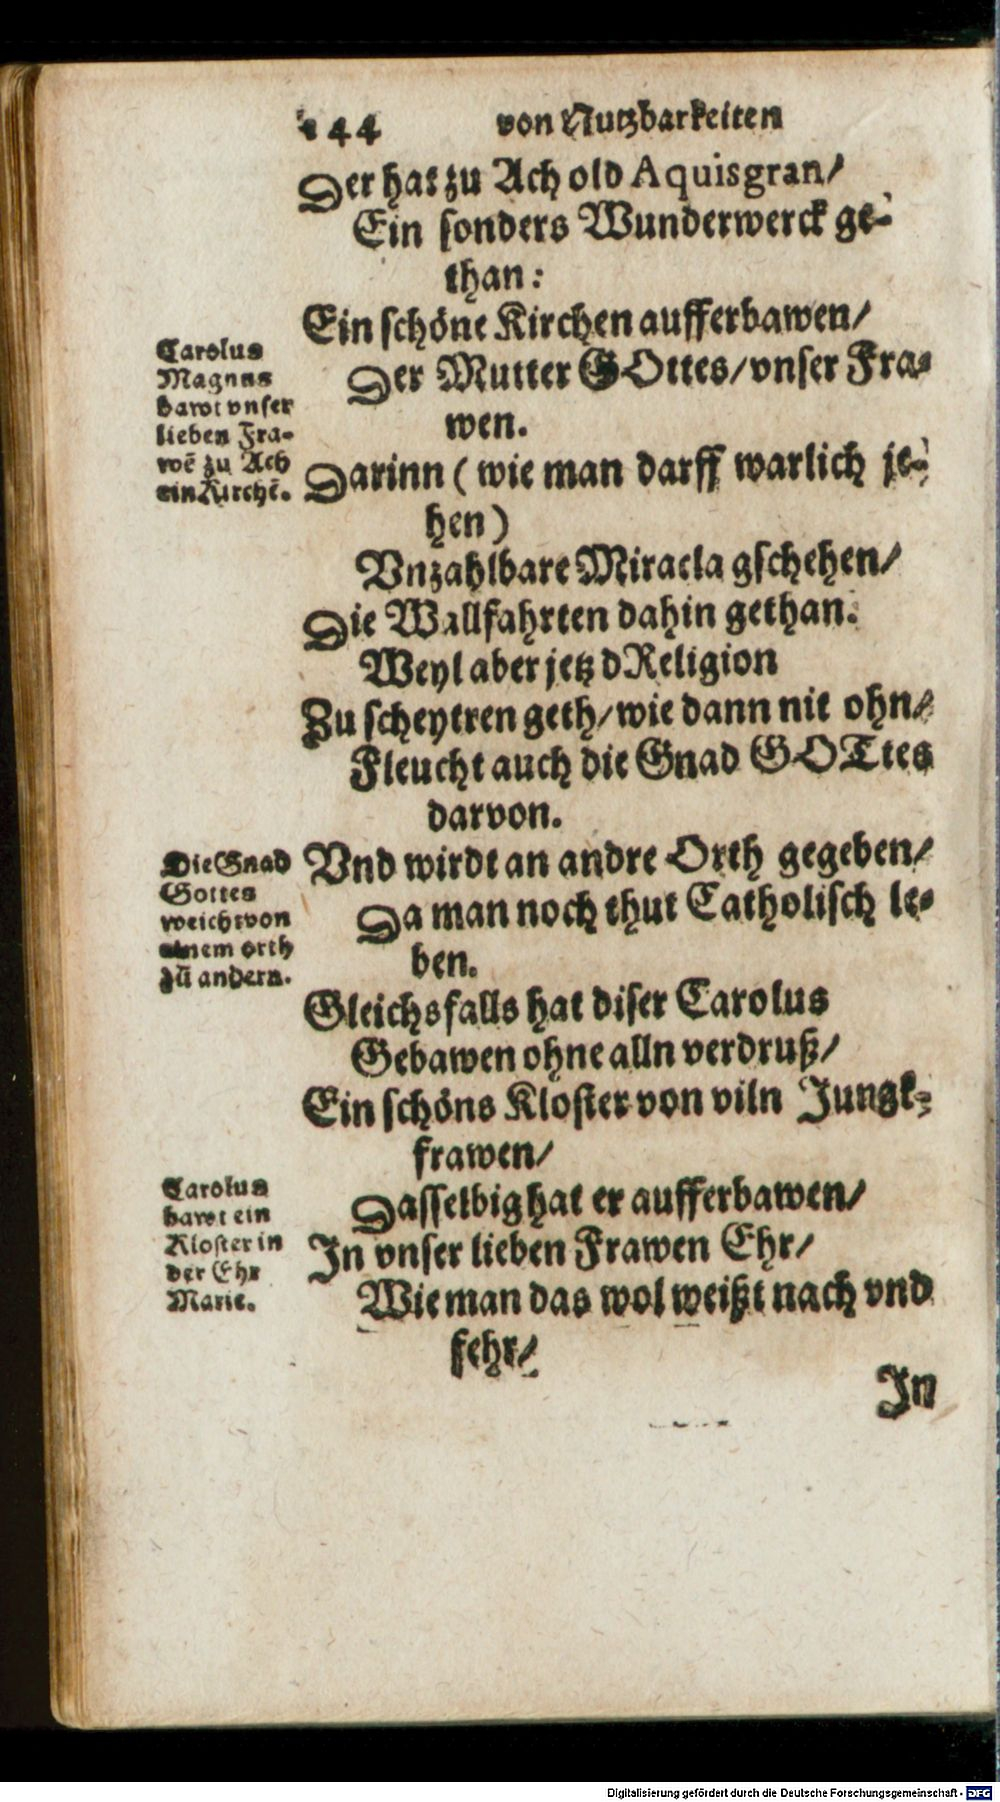 144 von Nutzbarkeiten
Der hat zu Ach old Aquisgran/
Ein sonders Wunderwerck ge-
than:
Ein schöne Kirchen aufferbawen/
Der Mutter GOttes/vnser Fra-
wen.
Carolus
Magnus
bawt vnser
lieben Fra-
wē zu Ach
ein Kirchē.
Darinn (wie man darff warlich je-
hen)
Vnzahlbare Miracla gschehen/
Die Wallfahrten dahin gethan:
Weyl aber jetz d Religion
Zu scheytren geth/wie dann nit ohn/
Fleucht auch die Gnad GOTtes
darvon.
Vnd wirdt an andre Orth gegeben/
Da man noch thut Catholisch le-
ben.
Die Gnad
Gottes
weicht von
einem orth
zū andern.
Gleichsfalls hat diser Carolus
Gebawen ohne alln verdruß/
Ein schöns Kloster von viln Jungk-
frawen/
Dasselbig hat er aufferbawen/
In vnser lieben Frawen Ehr/
Wie man das wol weißt nach vnd
fehr/
Carolus
bawt ein
Kloster in
der Ehr
Marie.
In
Digitalisierung gefördert durch die Deutsche Forschungsgemeinschaft - DFG